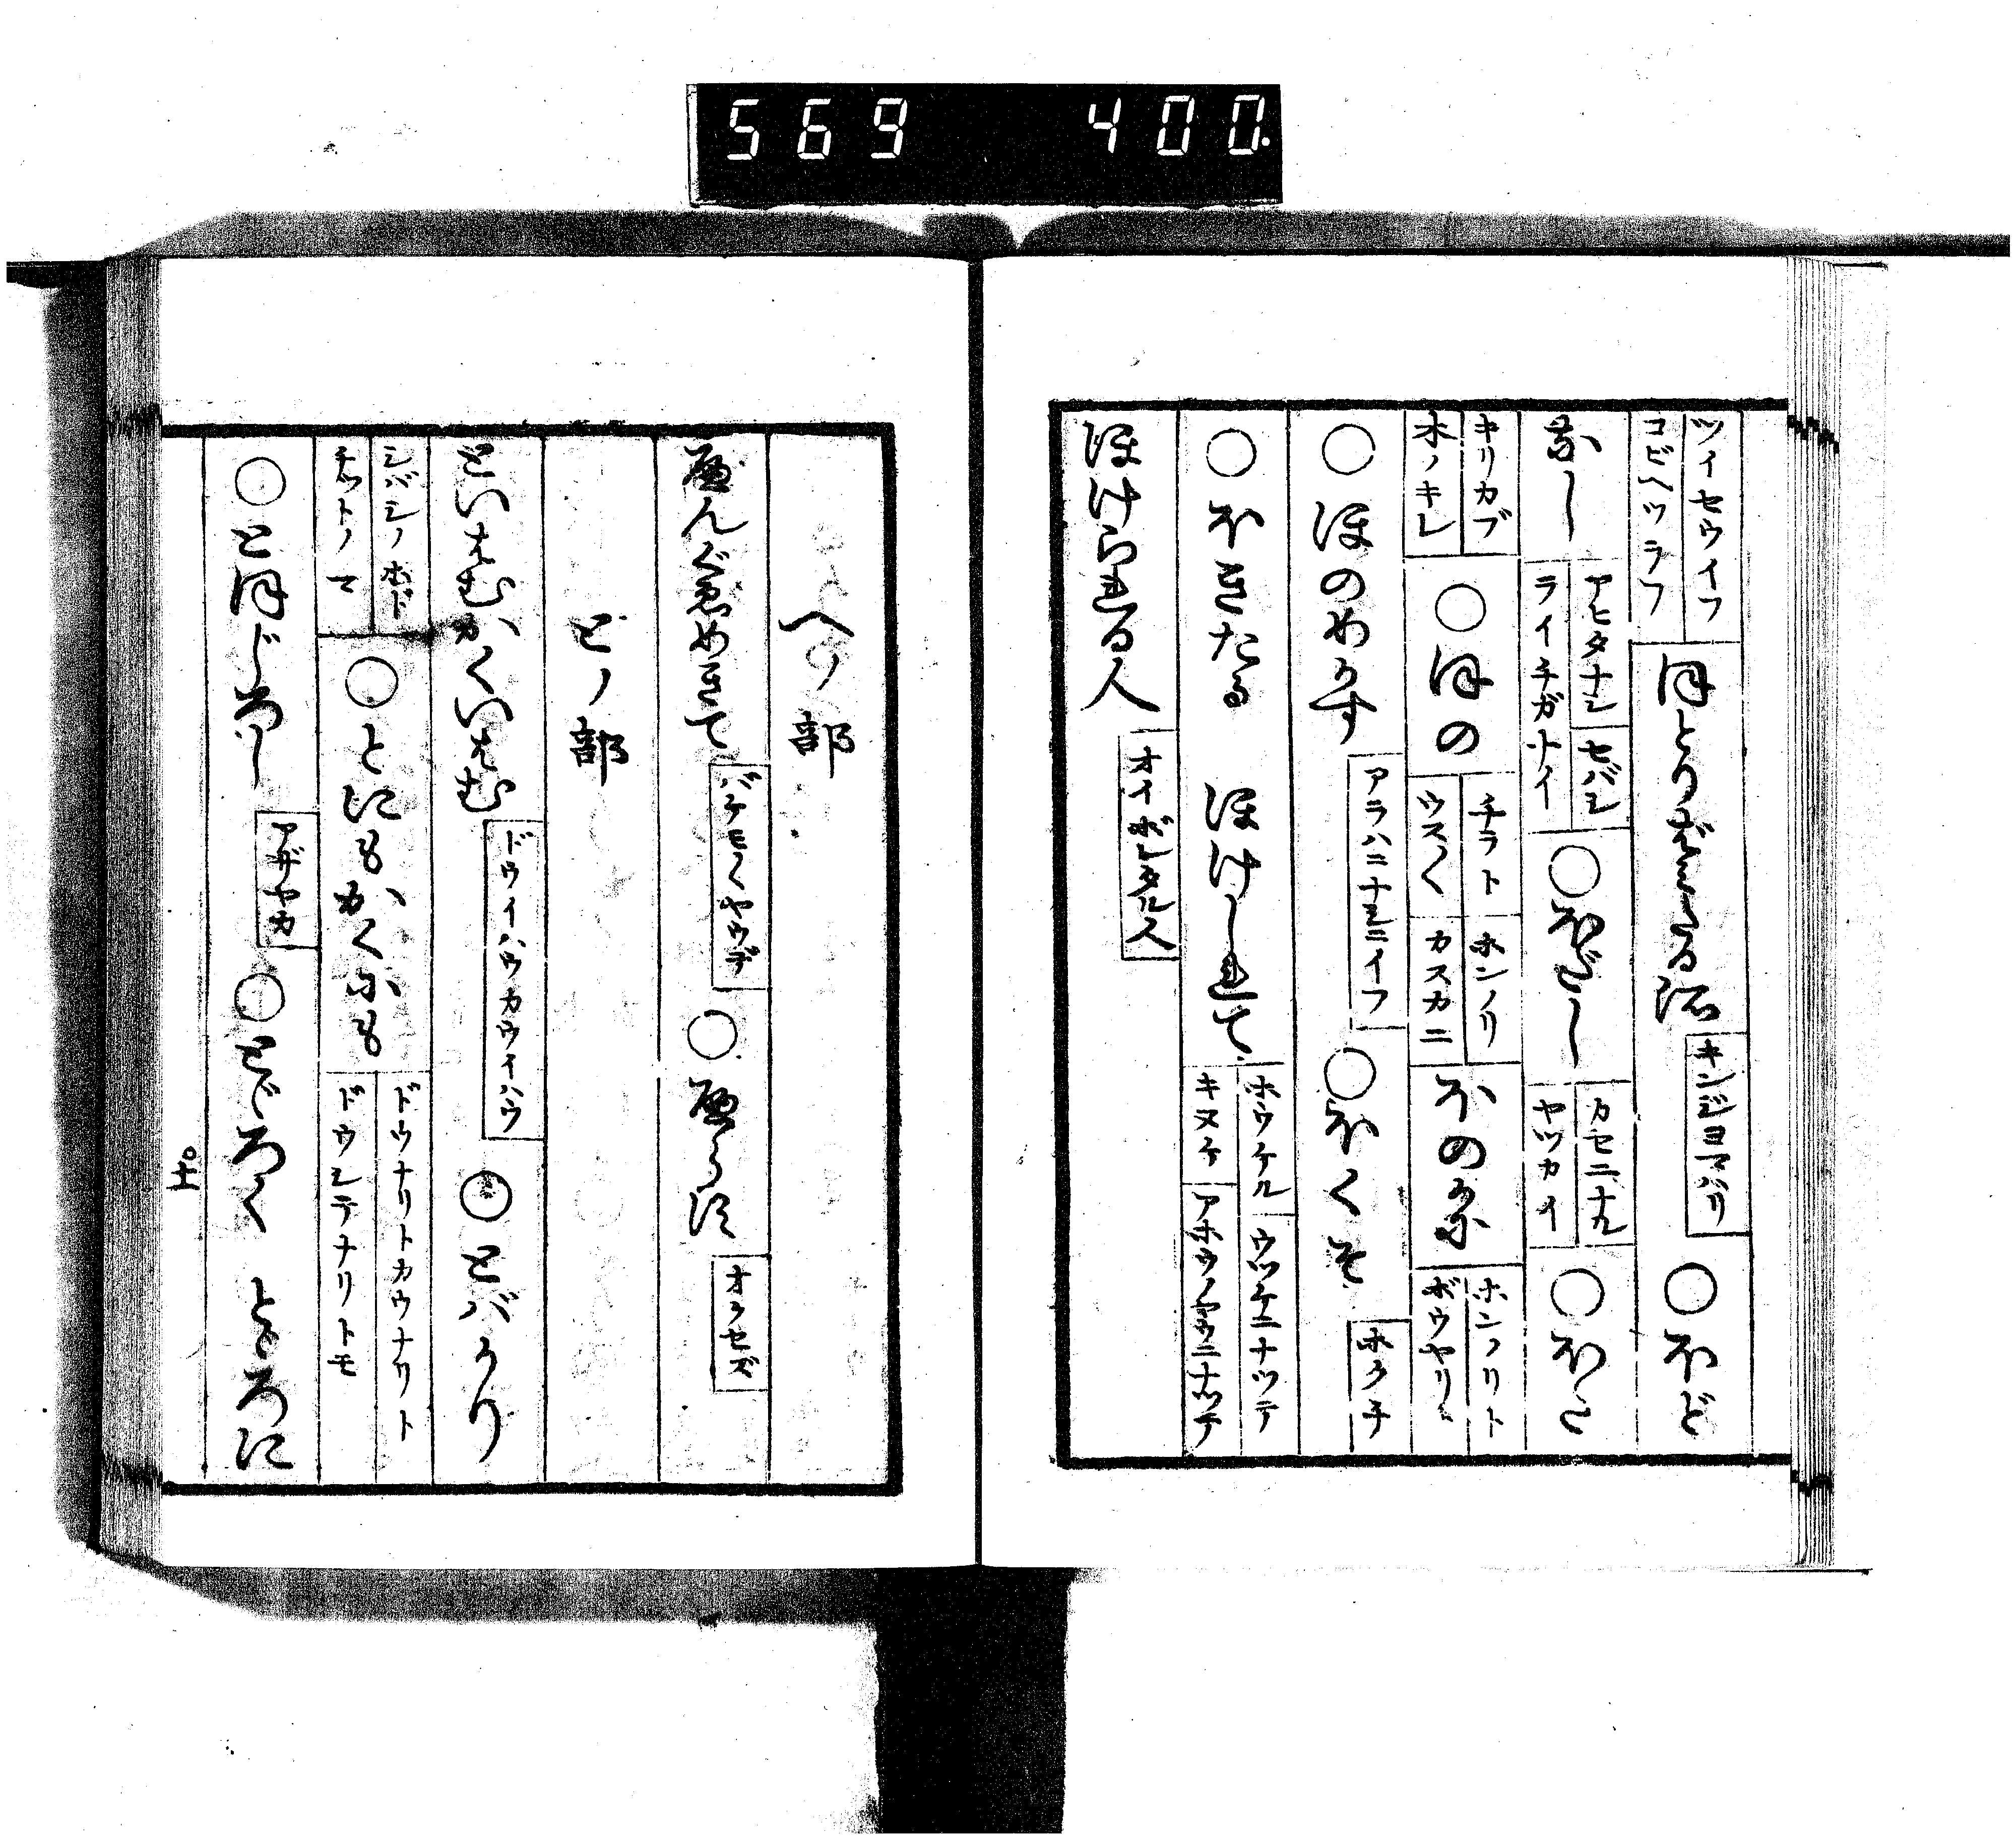 569 400.
ツイセウイフ
コビヘツラフ
キンジヨマハリ
○ほど
なし
アヒタナシ セバシ
ライチガナイ
○ほだし
カセニナル
ヤツカイ
キリカブ
木ノキレ
○ほの
チラト ホンノリ
ウス〱 カスカニ
ほのか
ホンノリト
ボウヤリ
○ほのめかす
アラハニナルニイフ
○ほくそ
ホクチ
○ほきたる ほけしれて
ホウケル ウツケニナツテ
キヌケ アホウノヤウニナツテ
ほけられる人
オイボレタル人
ヘノ部
バケモノヤウデ
オクセズ
とノ部
ドウイハウカウイハウ
○とバかり
シバシノホド
チツトノマ
○とにもかくにも
ドウナリトカウナリト
ドウシテナリトモ
○とほじろし
アザヤカ
○とどろく とどろに